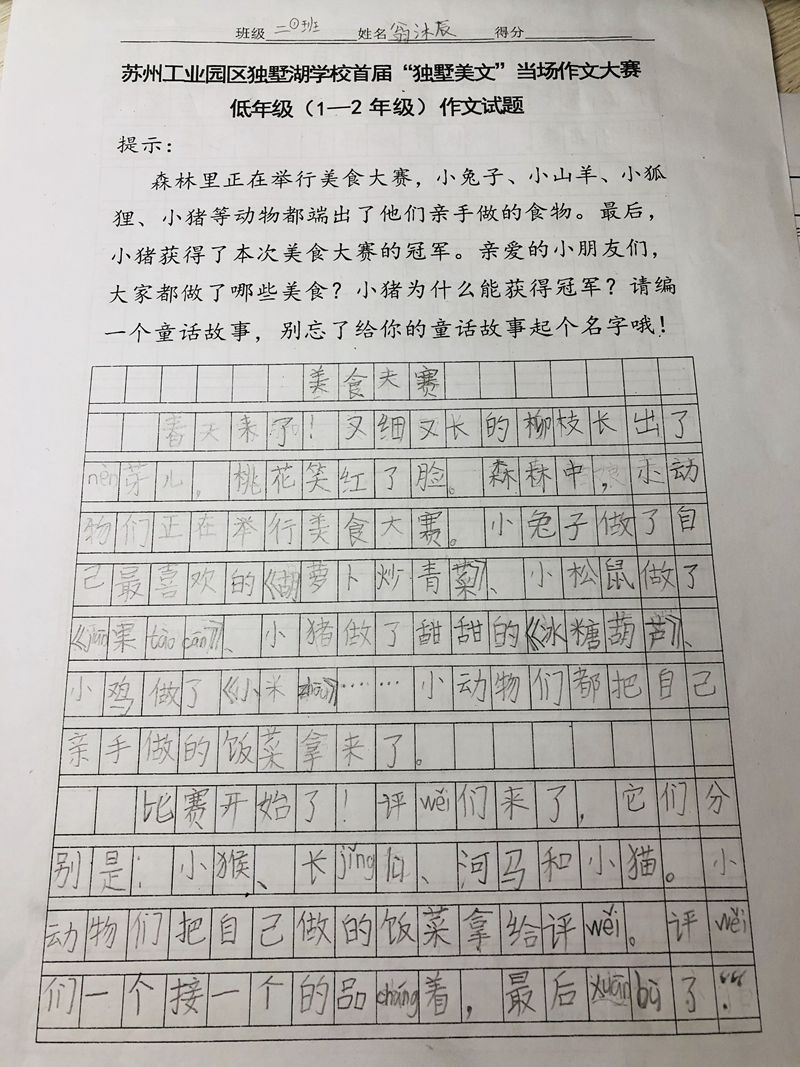 班级 二①班 姓名 翁沐辰 得分
苏州工业园区独墅湖学校首届“独墅美文”当场作文大赛
低年级（1—2 年级）作文试题
提示：
森林里正在举行美食大赛，小兔子、小山羊、小狐
狸、小猪等动物都端出了他们亲手做的食物。最后，
小猪获得了本次美食大赛的冠军。亲爱的小朋友们，
大家都做了哪些美食？小猪为什么能获得冠军？请编
一个童话故事，别忘了给你的童话故事起个名字哦！
美食大赛
春天来了！又细又长的柳枝长出了
nèn芽儿，桃花笑红了脸。森林中，小动
物们正在举行美食大赛。小兔子做了自
己最喜欢的《胡萝卜炒青菜》、小松鼠做了
《jiān果tào cān》、小猪做了甜甜的《冰糖葫芦》、
小鸡做了《小米zhōu》……小动物们都把自己
亲手做的饭菜拿来了。
比赛开始了！评wěi们来了，它们分
别是：小猴、长jǐng鹿、河马和小猫。小
动物们把自己做的饭菜拿给评wěi。评wěi
们一个接一个的品cháng着，最后xuān bù了：“